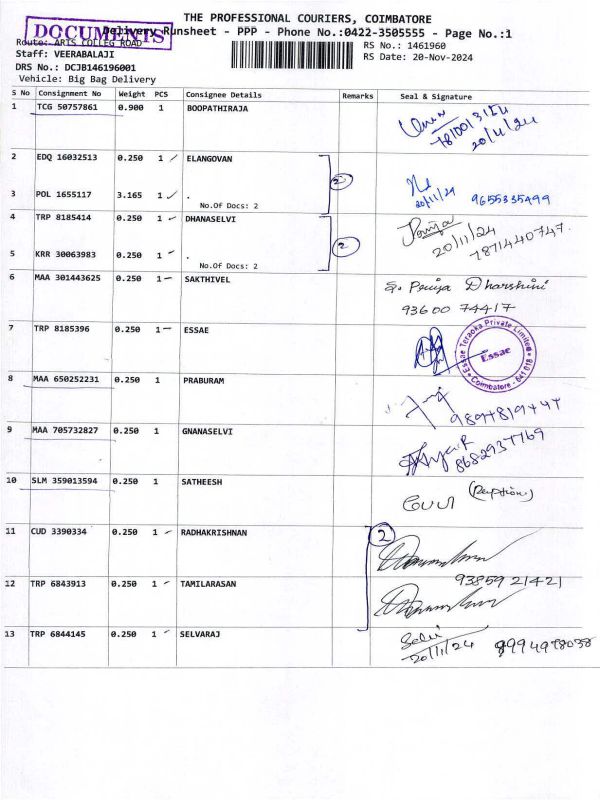 THE PROFESSIONAL COURIERS, COIMBATORE
DOCUMENTS
Delivery Runsheet - PPP - Phone No.:0422-3505555 - Page No.:1
Route: ARTS COLLEG ROAD
RS No.: 1461960
Staff: VEERABALAJI
RS Date: 20-Nov-2024
DRS No.: DCJB146196001
Vehicle: Big Bag Delivery
S No Consignment No Weight PCS Consignee Details Remarks Seal & Signature
1 TCG 50757861 0.900 1 BOOPATHIRAJA
2 EDQ 16032513 0.250 1 ELANGOVAN
2
3 POL 1655117 3.165 1 .
20/11/24 9655335499
No.Of Docs: 2
4 TRP 8185414 0.250 1 DHANASELVI
2
20/11/24
7871440747.
5 KRR 30063983 0.250 1 .
No.Of Docs: 2
6 MAA 301443625 0.250 1 SAKTHIVEL
S. Priya Dharshini
93600 74417
7 TRP 8185396 0.250 1 ESSAE
Essae Teraoka Private Limited
Essae
Coimbatore - 641 018
8 MAA 650252231 0.250 1 PRABURAM
9 MAA 705732827 0.250 1 GNANASELVI
8682937769
10 SLM 359013594 0.250 1 SATHEESH
11 CUD 3390334 0.250 1 RADHAKRISHNAN
2
93859 21421
12 TRP 6843913 0.250 1 TAMILARASAN
13 TRP 6844145 0.250 1 SELVARAJ
Selvi
20/11/24